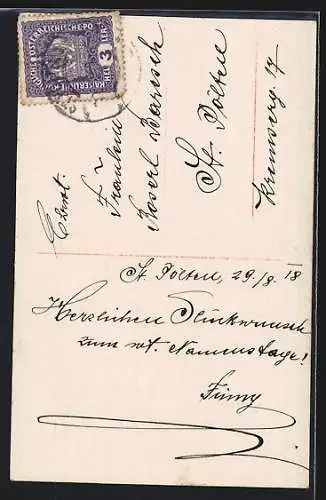 KAISERLICHE KÖNIGLICHE ÖSTERREICHISCHE POST
3 HELLER
Fräulein
Roserl
St. Pölten
Kremserg. 17
St. Pölten, 29./8. 18
Herzlichen Glückwunsch
zum w. Namenstage!